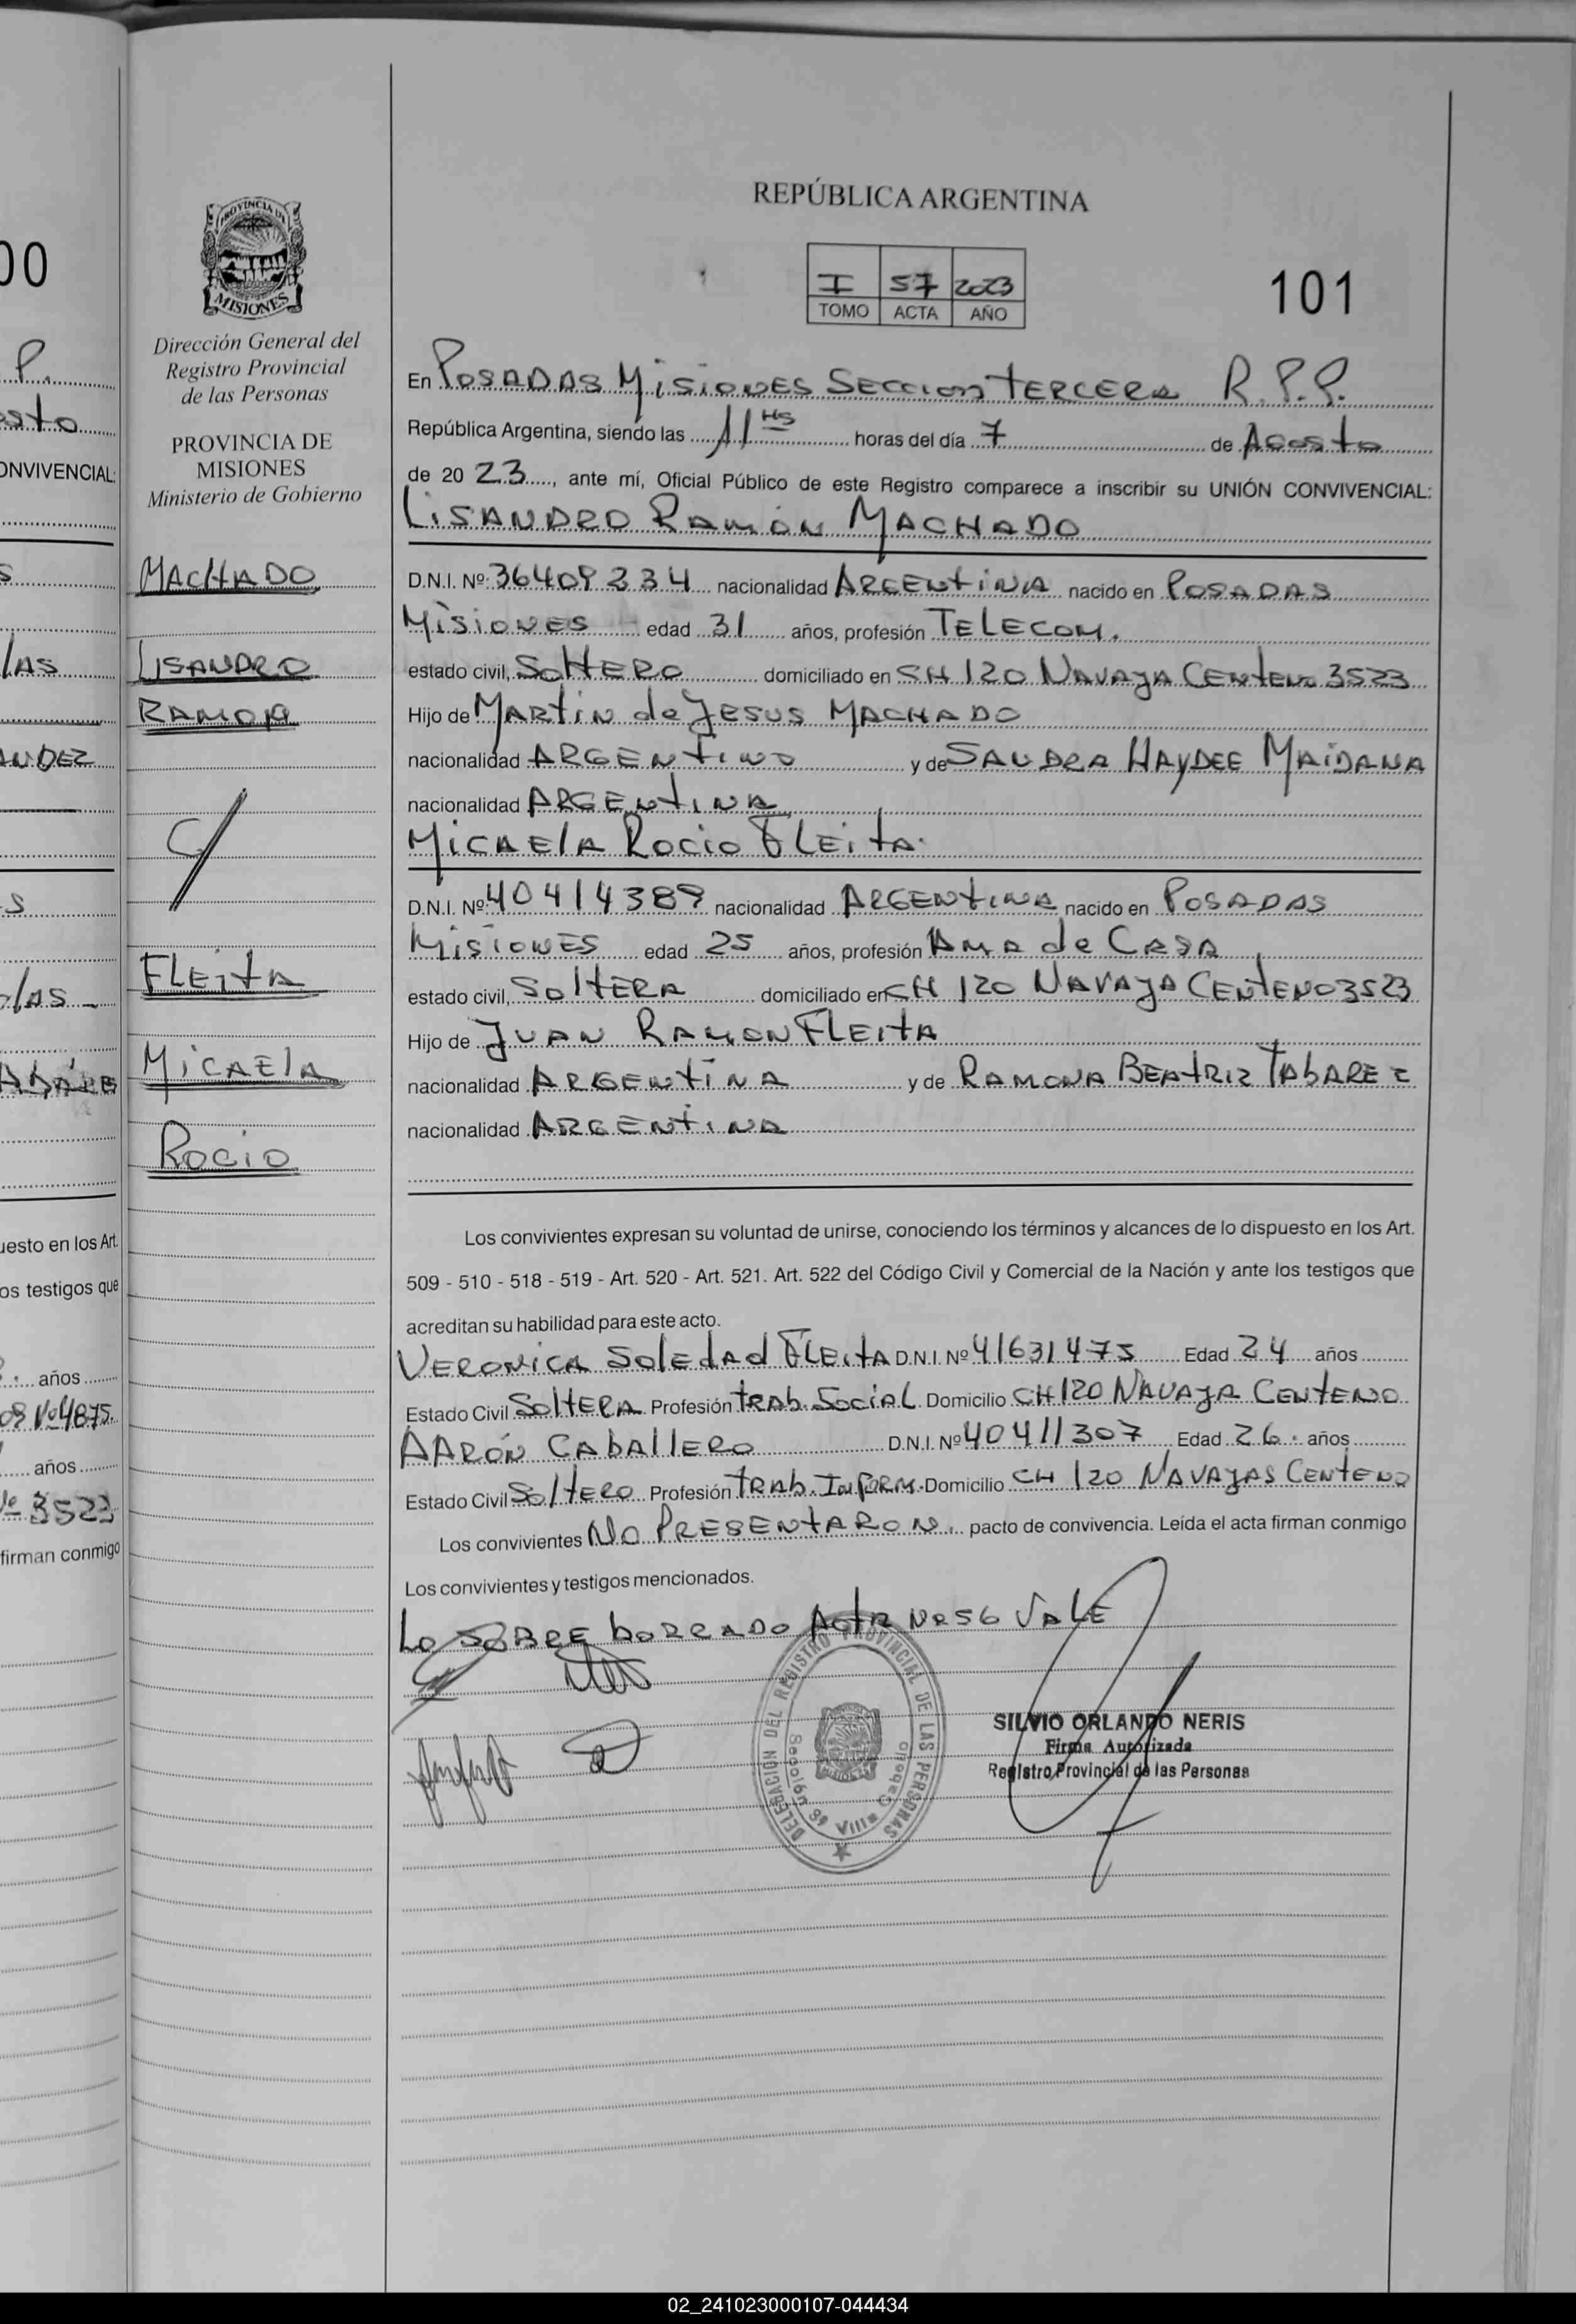 REPÚBLICA ARGENTINA
I 57 2023
TOMO ACTA AÑO
101
PROVINCIA DE
MISIONES
Dirección General del
Registro Provincial
de las Personas
PROVINCIA DE
MISIONES
Ministerio de Gobierno
MACHADO
LISANDRO
RAMON
C/
FLEITA
MICAELA
ROCIO
En POSADAS MISIONES SECCION TERCERA R.P.P.
República Argentina, siendo las 11 HS horas del día 7 de AGOSTO
de 20 23, ante mí, Oficial Público de este Registro comparece a inscribir su UNIÓN CONVIVENCIAL:
LISANDRO RAMÓN MACHADO
D.N.I. Nº: 36409234 nacionalidad ARGENTINA nacido en POSADAS
MISIONES edad 31 años, profesión TELECOM.
estado civil, SOLTERO domiciliado en CH 120 NAVAJA CENTENO 3523
Hijo de MARTIN de JESUS MACHADO
nacionalidad ARGENTINO y de SANDRA HAYDEE MAIDANA
nacionalidad ARGENTINA
MICAELA ROCIO FLEITA.
D.N.I. Nº: 40414389 nacionalidad ARGENTINA nacido en POSADAS
MISIONES edad 25 años, profesión AMA de CASA
estado civil, SOLTERA domiciliado en CH 120 NAVAJA CENTENO 3523
Hijo de JUAN RAMON FLEITA
nacionalidad ARGENTINA y de RAMONA BEATRIZ TABAREZ
nacionalidad ARGENTINA
Los convivientes expresan su voluntad de unirse, conociendo los términos y alcances de lo dispuesto en los Art.
509 - 510 - 518 - 519 - Art. 520 - Art. 521. Art. 522 del Código Civil y Comercial de la Nación y ante los testigos que
acreditan su habilidad para este acto.
VERONICA SOLEDAD FLEITA D.N.I. Nº 41631475 Edad 24 años
Estado Civil SOLTERA Profesión TRAB. SOCIAL Domicilio CH 120 NAVAJA CENTENO
AARÓN CABALLERO D.N.I. Nº 40411307 Edad 26. años
Estado Civil SOLTERO Profesión TRAB. INFORM. Domicilio CH 120 NAVAJAS CENTENO
Los convivientes NO PRESENTARON. pacto de convivencia. Leída el acta firman conmigo
Los convivientes y testigos mencionados.
LO SOBRE BORRADO ACTA NR 56 VALE
DELEGACIÓN DEL REGISTRO PROVINCIAL DE LAS PERSONAS
Sección 3ª Villa Cabello
SILVIO ORLANDO NERIS
Firma Autorizada
Registro Provincial de las Personas
02_241023000107-044434